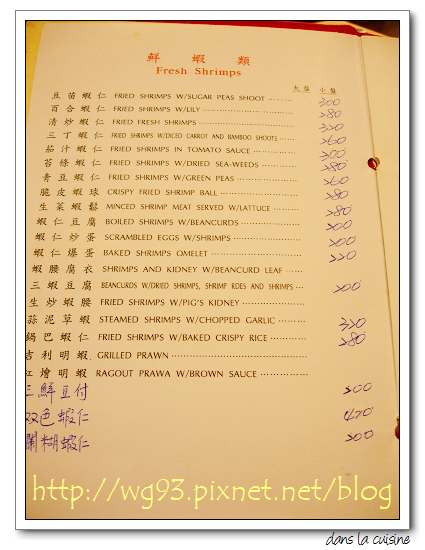 鮮 蝦 類
Fresh Shrimps
大盤 小盤
豆苗蝦仁 FRIED SHRIMPS W/SUGAR PEAS SHOOT ......... 300
百合蝦仁 FRIED SHRIMPS W/LILY ......... 280
清炒蝦仁 FRIED FRESH SHRIMPS ......... 320
三丁蝦仁 FRIED SHRIMPS W/DICED CARROT AND BAMBOO SHOOTS ..... 260
茄汁蝦仁 FRIED SHRIMPS IN TOMATO SAUCE ......... 200
苔條蝦仁 FRIED SHRIMPS W/DRIED SEA-WEEDS ......... 280
青豆蝦仁 FRIED SHRIMPS W/GREEN PEAS ......... 260
脆皮蝦球 CRISPY FRIED SHRIMP BALL ......... 280
生菜蝦鬆 MINCED SHRIMP MEAT SERVED W/LETTUCE ......... 280
蝦仁豆腐 BOILED SHRIMPS W/BEANCURDS ......... 200
蝦仁炒蛋 SCRAMBLED EGGS W/SHRIMPS ......... 200
蝦仁爆蛋 BAKED SHRIMPS OMELET ......... 220
蝦腰腐衣 SHRIMPS AND KIDNEY W/BEANCURD LEAF ......
三蝦豆腐 BEANCURDS W/DRIED SHRIMPS, SHRIMP ROES AND SHRIMPS ... 200
生炒蝦腰 FRIED SHRIMPS W/PIG'S KIDNEY .........
蒜泥草蝦 STEAMED SHRIMPS W/CHOPPED GARLIC ......... 320
鍋巴蝦仁 FRIED SHRIMPS W/BAKED CRISPY RICE ......... 280
吉利明蝦 GRILLED PRAWN .........
紅燴明蝦 RAGOUT PRAWA W/BROWN SAUCE .........
三鮮豆付 200
双色蝦仁 420
蝦仁 300
http://wg93.pixnet.net/blog
dans la cuisine